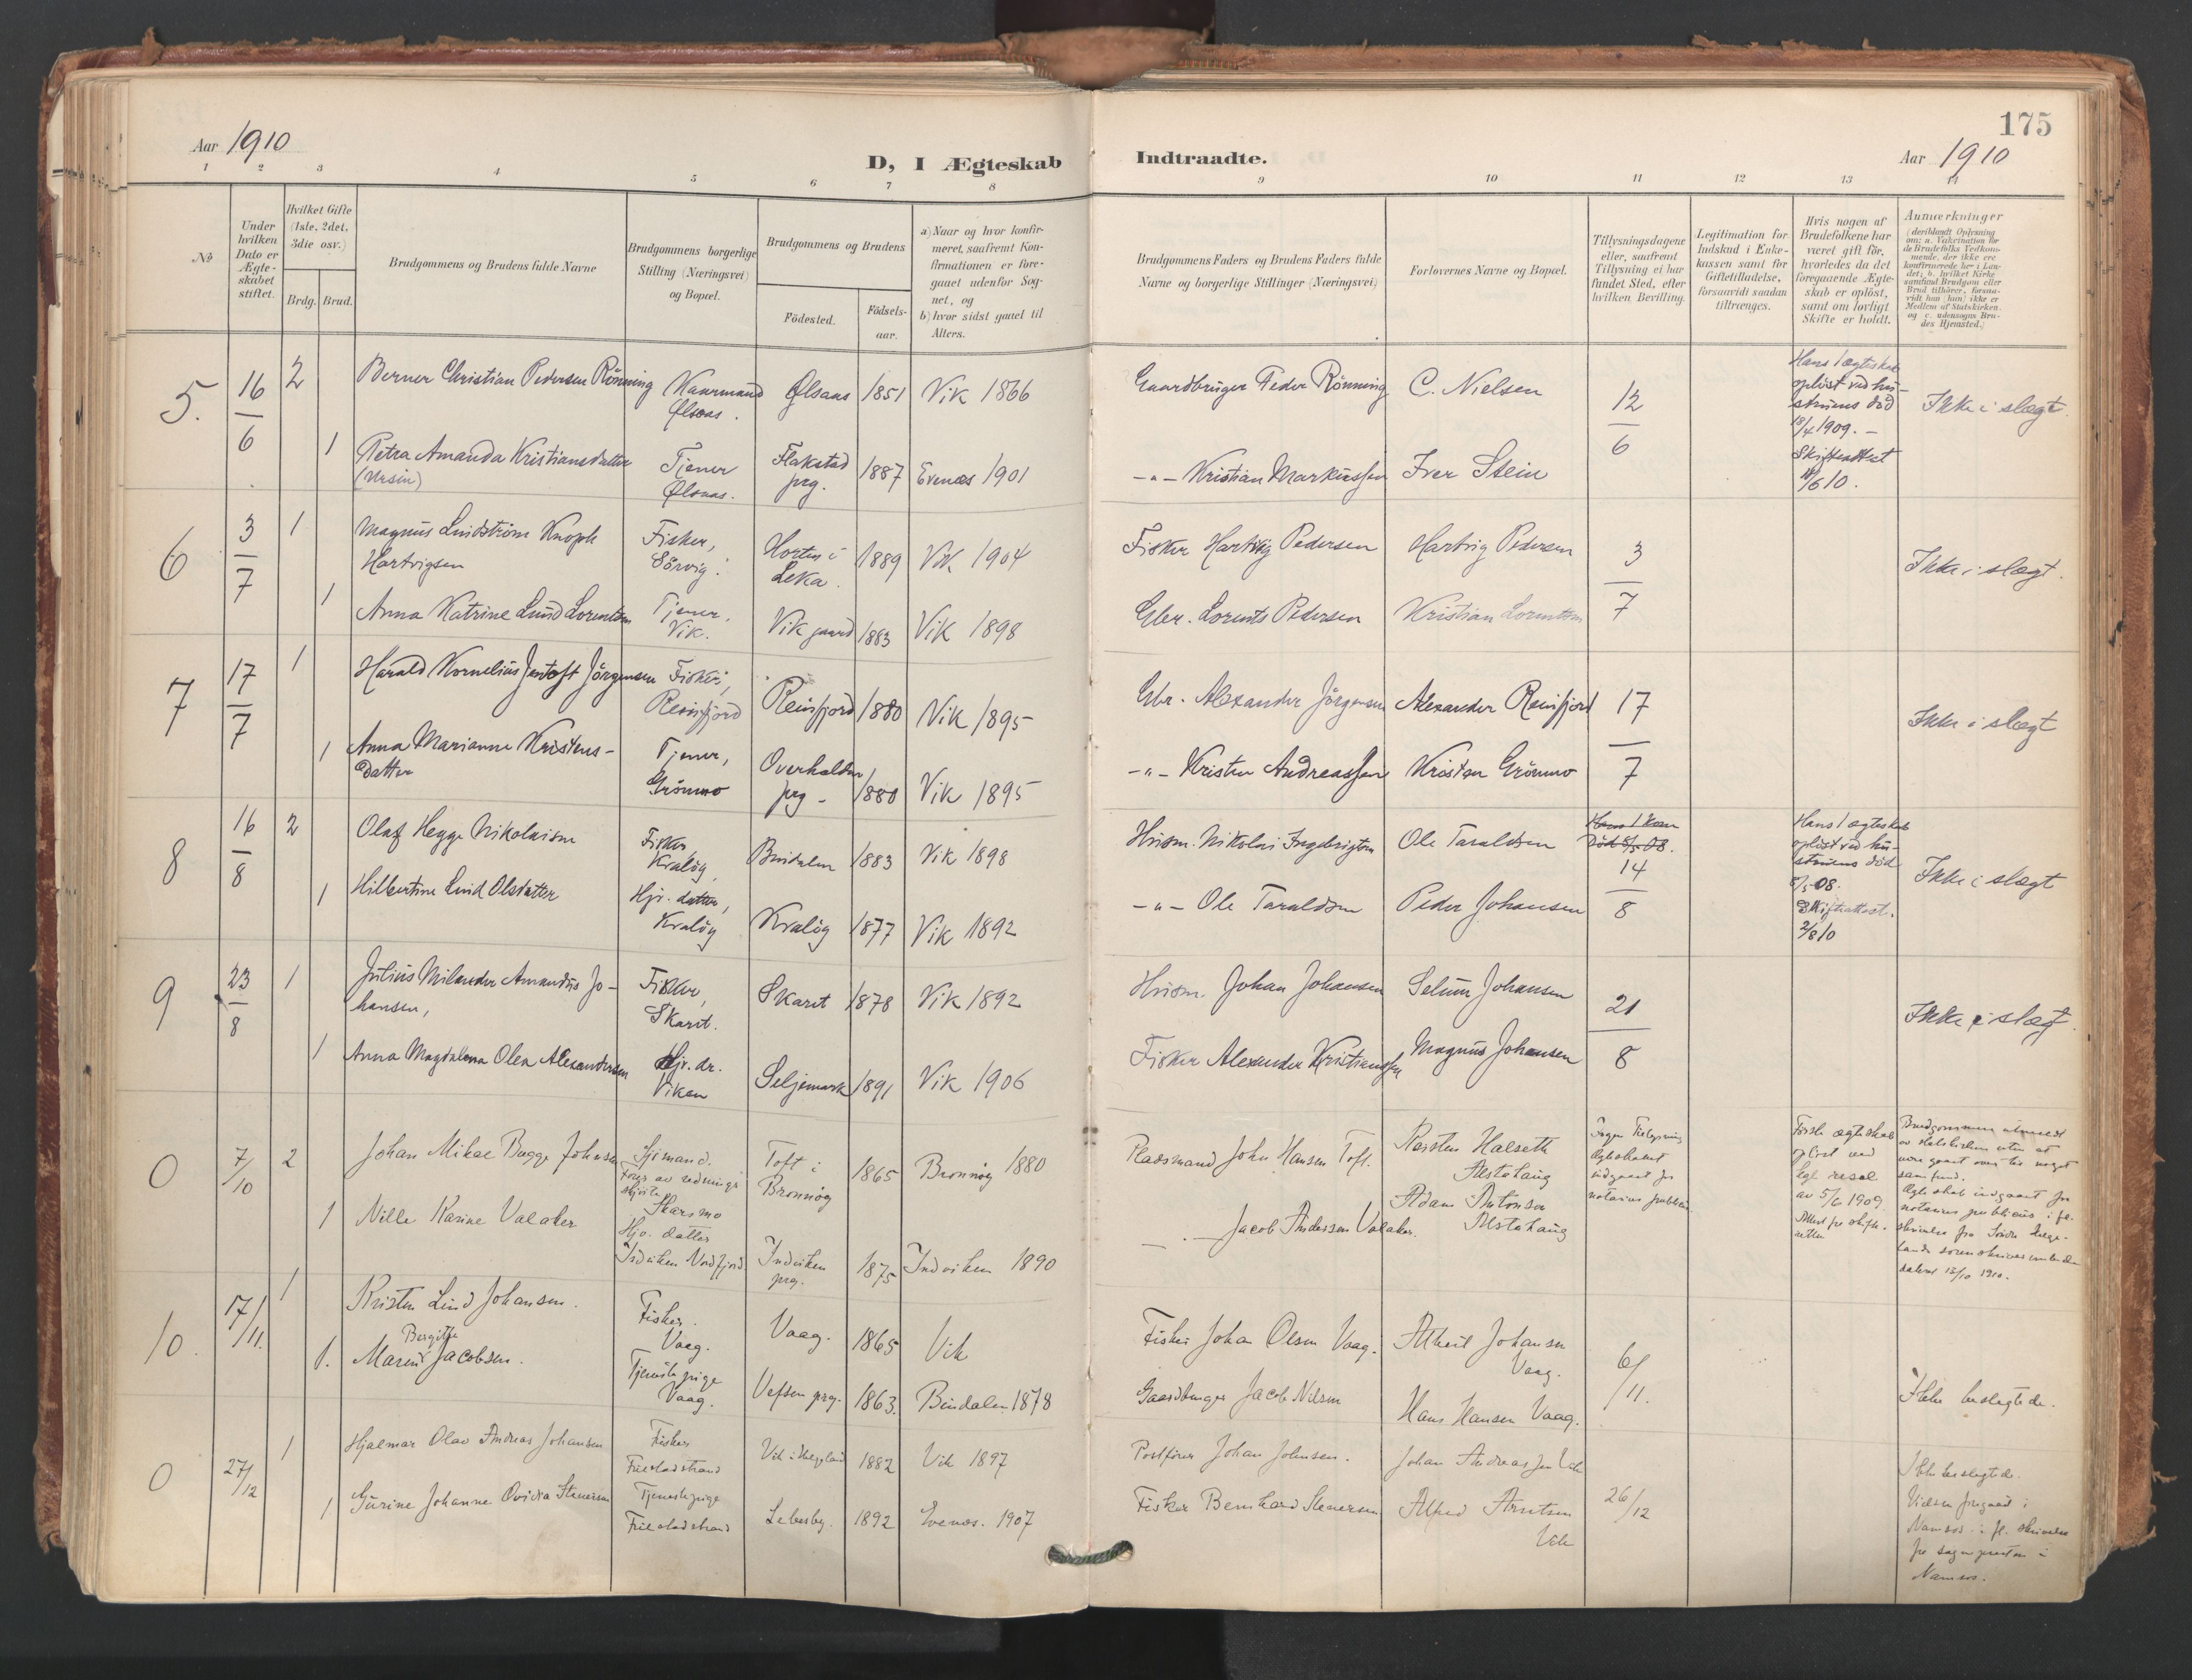 175
Aar 1910
D, I Ægteskab Indtraadte.
Aar 1910
1 2 3 4 5 6 7 8 9 10 11 12 13 14
No
Under hvilken Dato er Ægteskabet stiftet.
Hvilket Gifte (1ste, 2det, 3die osv.)
Brdg. Brud.
Brudgommens og Brudens fulde Navne
Brudgommens borgerlige Stilling (Næringsvei) og Bopæl.
Brudgommens og Brudens
Fødested.
Fødselsaar.
a) Naar og hvor konfirmeret, saafremt Konfirmationen er foregaaet udenfor Sognet, og
b) hvor sidst gaaet til Alters.
Brudgommens Faders og Brudens Faders fulde Navne og borgerlige Stillinger (Næringsvei)
Forlovernes Navne og Bopæl.
Tillysningsdagene eller, saafremt Tillysning ei har fundet Sted, efter hvilken Bevilling.
Legitimation for Indskud i Enkekassen samt for Giftetilladelse, forsaavidt saadan tiltrænges.
Hvis nogen af Brudefolkene har været gift før, hvorledes da det foregaaende Ægteskab er opløst, samt om lovligt Skifte er holdt.
Anmærkninger (deriblandt Oplysning om: a. Vakcination for de Brudefolks Vedkommende, der ikke ere konfirmerede her i Landet; b. hvilket Kirkesamfund Brudgom eller Brud tilhører, forsaavidt han (hun) ikke er Medlem af Statskirken. og c. udensogns Brudes Hjemsted.)
5. 16/6 2 Berner Christian Pedersen Rönning Ølsaas 1851 Vik 1866 Gaardbruger Peder Rönning C. Nielsen 12/6 Hans 1 ægteskab opløst ved hustruens død 18/4 1909. - Skifteattest 11/6 10. Ikke i slægt
1 Petra Amanda Kristiansdatter (Ursin) Tjener Ølsaas. Flakstad prg. 1887 Evenæs 1901 -"- Kristian Markussen Iver Stein
6 3/7 1 Magnus Lindström Knoph Hartvigsen Fisker, Sörvig. Horten i Leka. 1889 Vik 1904 Fisker Hartvig Pedersen Hartvig Pedersen 3/7 Ikke i slægt.
1 Anna Katrine Lund Lorentsen Tjener, Vik. Vik gaard 1883 Vik 1898 Gbr. Lorents Pedersen Kristian Lorentsen
7 17/7 1 Harald Kornelius Jentoft Jörgensen Fisker, Reinfjord Reinfjord 1880 Vik 1895 Gbr. Alexander Jörgensen Alexander Reinfjord 17/7 Ikke i slægt
1 Anna Marianne Kristensdatter Tjener, Grönmo Overhalden prg - 1880 Vik 1895 -"- Kristen Andreassen Kristen Grönmo
8 16/8 2 Olaf Hegge Nikolaisen Fisker, Kralög, Bindalen 1883 Vik 1898 Husm. Nikolai Ingebrigtsen Ole Taraldsen Hans 1 Kone død 8/5 08. 14/8 Hans 1 ægteskab opløst ved hustruens død 8/5 08. Skifteattest. 2/8 10 Ikke i slægt
1 Hilbertine Lind Olsdatter Hjv. datter, Kralög Kralög 1877 Vik 1892 -"- Ole Taraldsen Peder Johansen
9 23/8 1 Julius Milander Amandus Johansen, Fisker, Skaret. Skaret 1878 Vik 1892 Husm. Johan Johansen Selum Johansen 21/8 Ikke i slægt.
1 Anna Magdalena Olea Alexandersen Hjv. dr. Viken Seljemark 1891 Vik 1906 Fisker Alexander Kristiansen Magnus Johansen
0 7/10 2 Johan Mikae Bugge Johnsen Sjömand. Förer av redningsskjöite Skarsmo Toft i Brønnøy 1865 Brønnøy 1880 Pladsmand John Hansen Toft. Karsten Halseth Alstahaug Ingen Tillysning Ægteskabet indgaaet for notarius publicus Förste ægteskab oplöst ved kgl resol av 5/6 1909. Attest fra skifteretten Brudgommen utmeldt av statskirken uten at være gaaet over til noget samfund. Ægteskab indgaaet for notarius publicus i fl. skrivelse fra Søndre Helgelands sorenskriverembede dateret 12/10 1910.
1 Nille Karine Valaker Hjv. datter Indviken Nordfjord Indviken prg. 1875 Indviken 1890 - " - Jacob Andersen Valaker. Adam Antonsen Alstahaug
10. 17/11. 1 Kristen Lind Johansen. Fisker. Vaag. Vaag. 1865 Vik Fisker Johan Olsen Vaag. Johansen Vaag. 6/11. Ikke beslegtede.
1. Maren Bergitte Jacobsen. Tjenestepige Vaag. Vefsen prg. 1863. Bindalen 1878 Gaardbruger Jacob Nilsen Hans Hansen Vaag.
0 27/12 1 Hjalmar Olav Andreas Johansen Fisker Vik i Helgeland 1882 Vik 1897 Postfører Johan Johnsen. Johan Andreassen Vik 26/12 Ikke beslegtede. Vielsen foregaad i Namsos i fl. skrivelse fra sogneprest en i Namsos.
1 Gurine Johanne Ovidia Stenersen Tjenestepige Lebesby. 1892 Evenes. 1907 Fisker Bernhard Stenersen Alfred Arntsen Vik